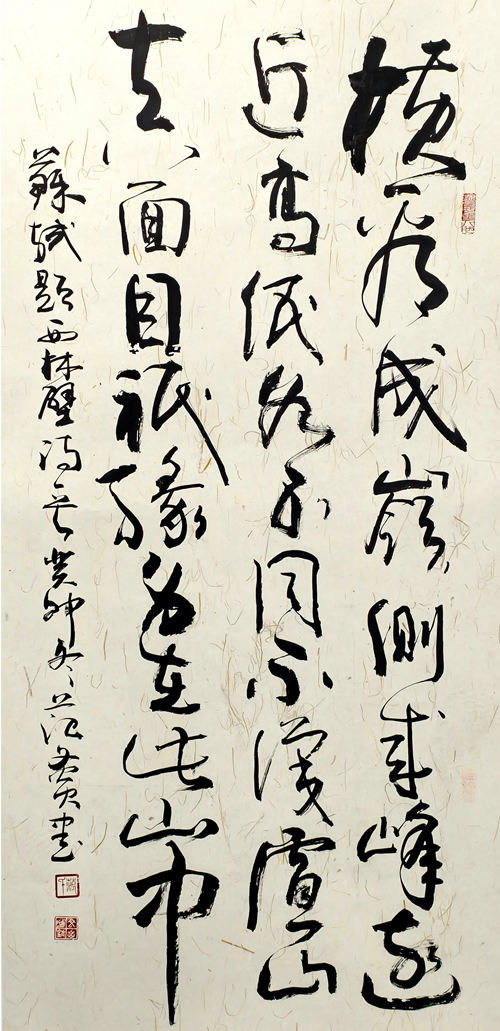 横看成嶺側成峰遠
近高低各不同不識廬山
真面目祇緣身在此山中
蘇軾題西林壁詩一首癸卯冬書